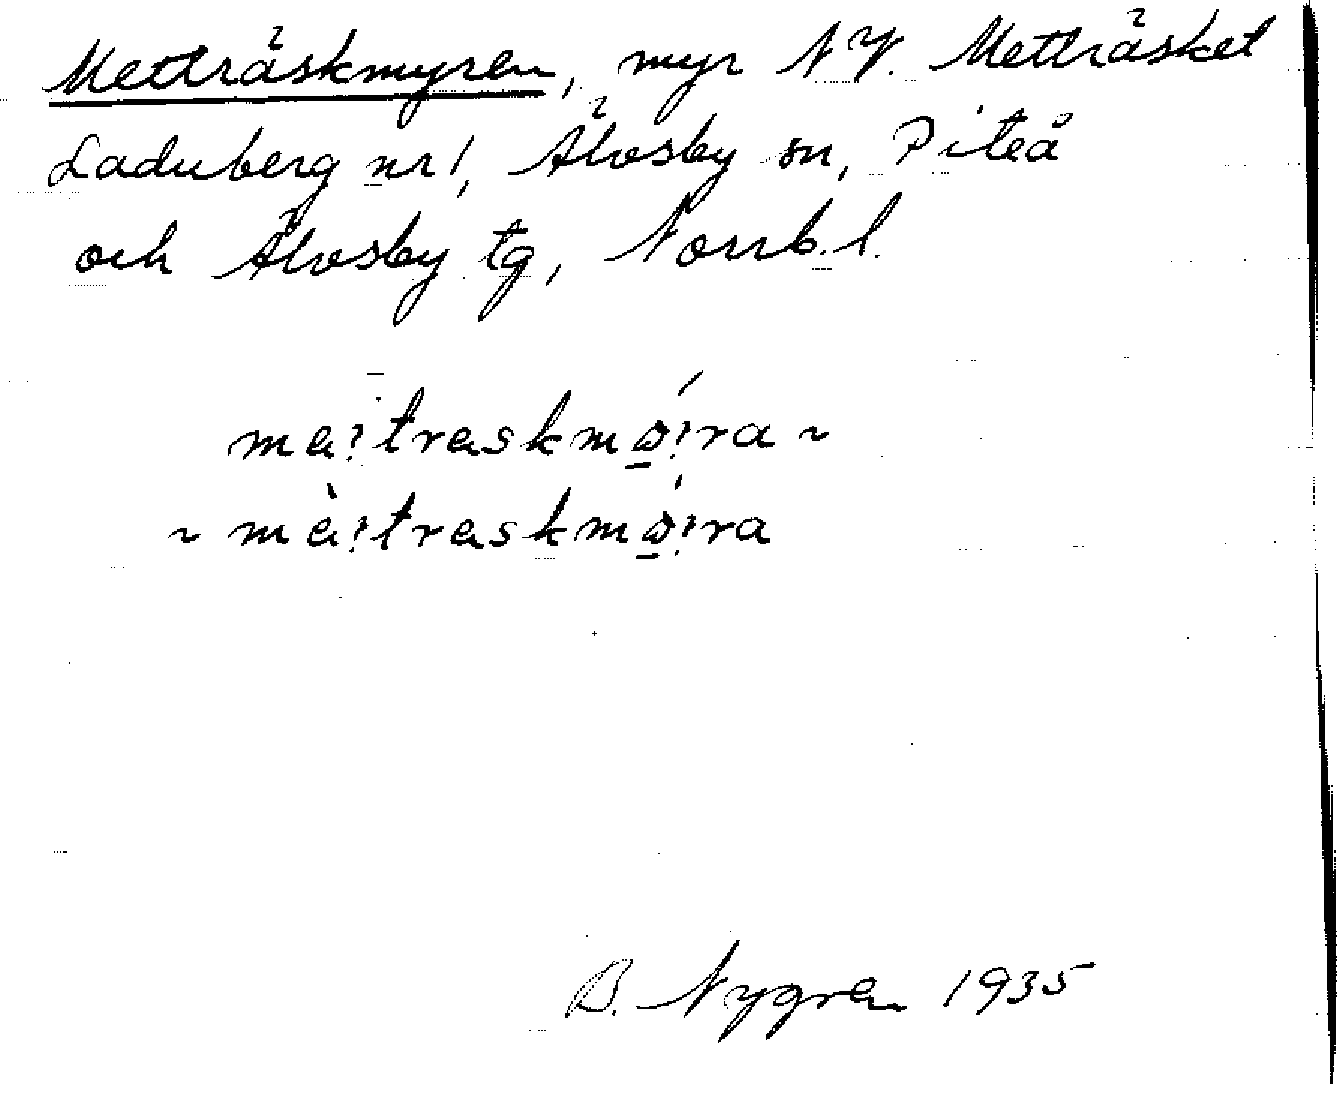 Metträskmyren, myr NV. Metträsket
Laduberg nr 1, Älvsby sn, Piteå
och Älvsby tg, Norrb. l.
mα꞉traskmǿ̱꞉ra ~
~ mὰ꞉traskmǿ̱꞉ra
B. Nygren 1935